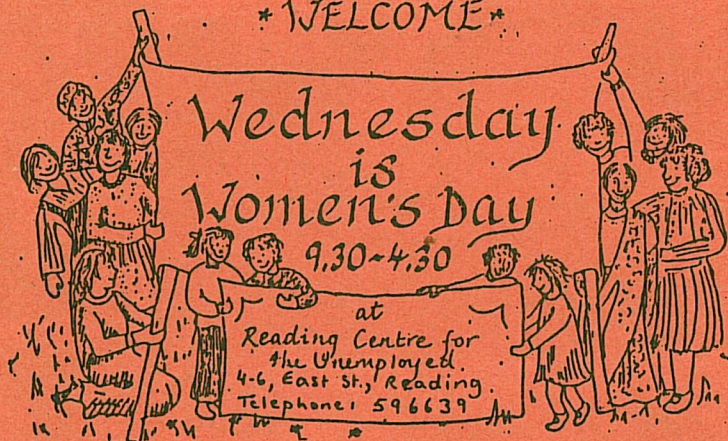 *WELCOME*
Wednesday
is
Women's Day
9.30~4.30
at
Reading Centre for
the Unemployed.
4-6, East St., Reading.
Telephone: 596639